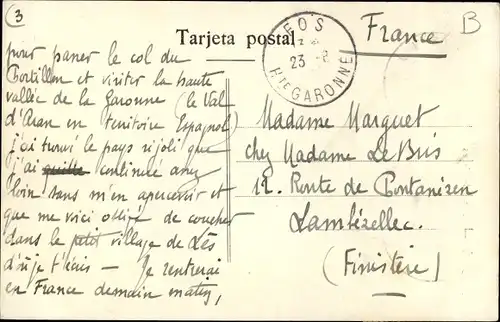 3
Tarjeta postal
France
B
FOS
23 - 8
Hte GARONNE
pour passer le col du
Portillon et visiter la haute
vallée de la Garonne (le Val
d'Aran en territoire Espagnol)
j'ai trouvé le pays si joli que
j'ai continué assez
loin sans m'en apercevoir et
que me voici obligé de coucher
dans le petit village de Lés
d'où je t'écris — Je rentrerai
en France demain matin,
Madame Marquet
chez Madame Le Bris
12. Route de Pontanézen
Lambézellec.
(Finistère)